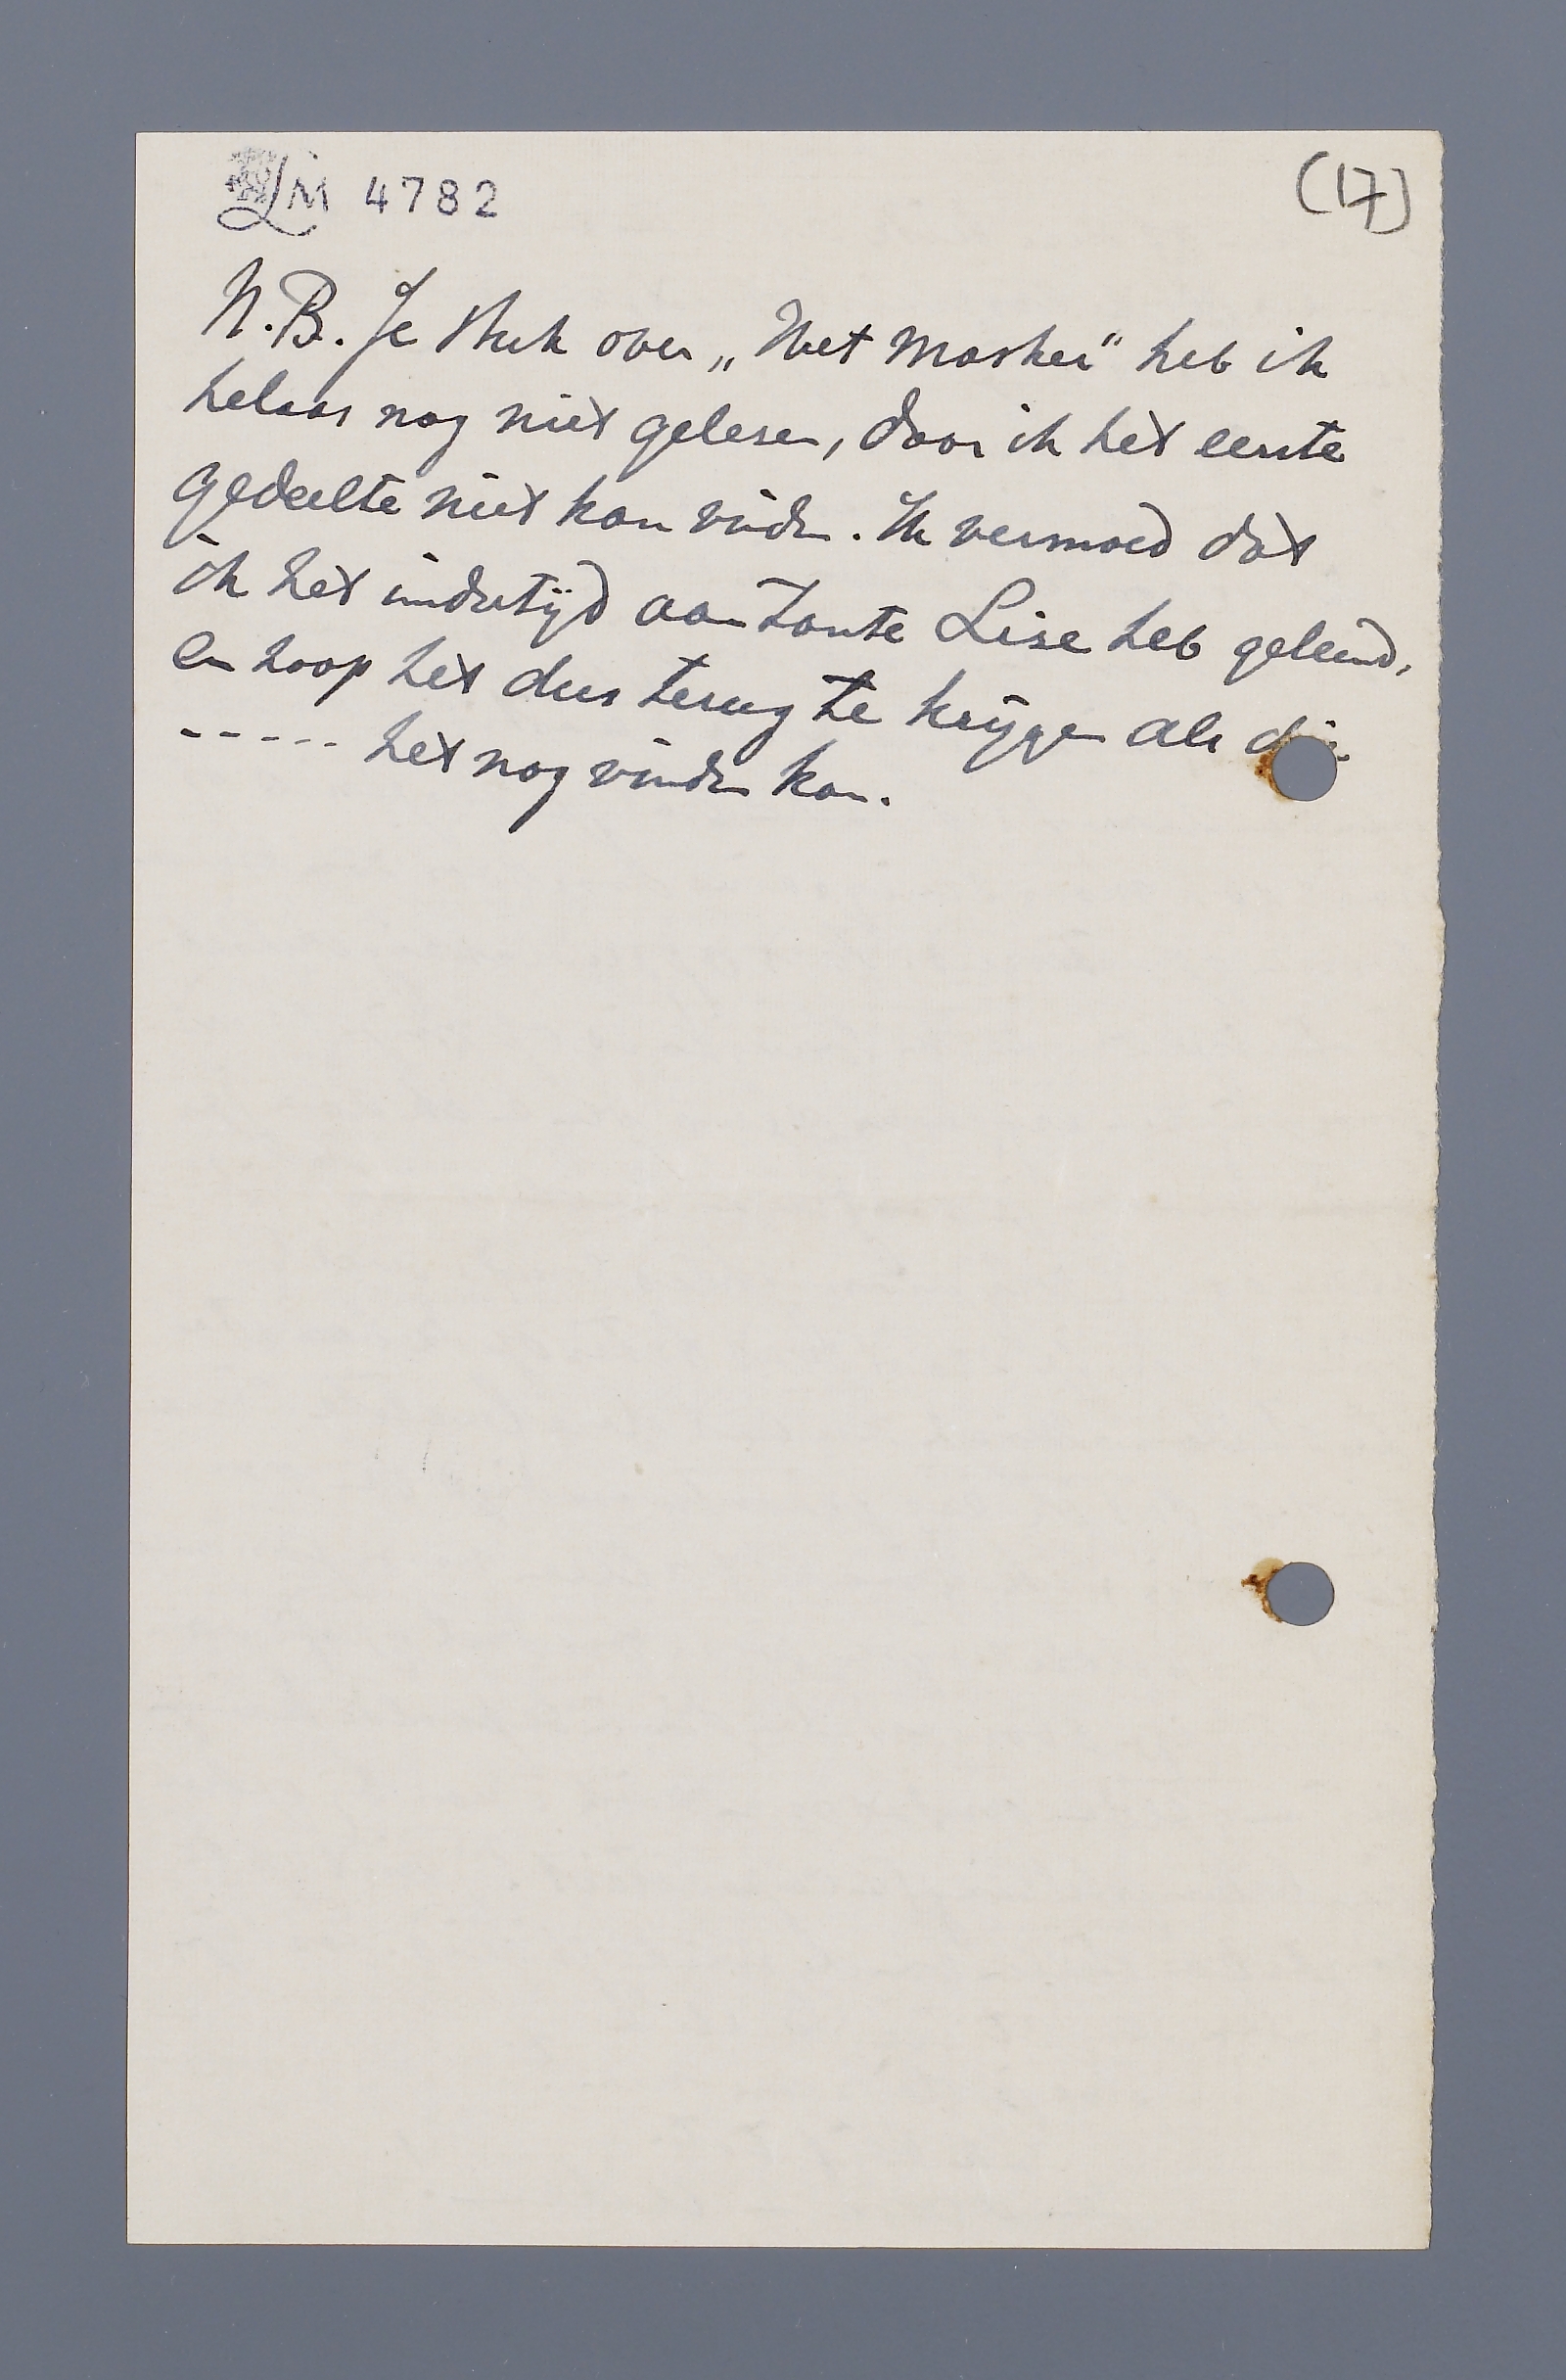 LM 4782
(17)
N.B. Je stuk over „Het Masker" heb ik
helaas nog niet gelezen, daar ik het eerste
gedeelte niet kan vinden. Ik vermoed dat
ik het indertijd aan Tante Lise heb geleend,
en hoop het dus terug te krijgen als die
----- het nog vinden kan.